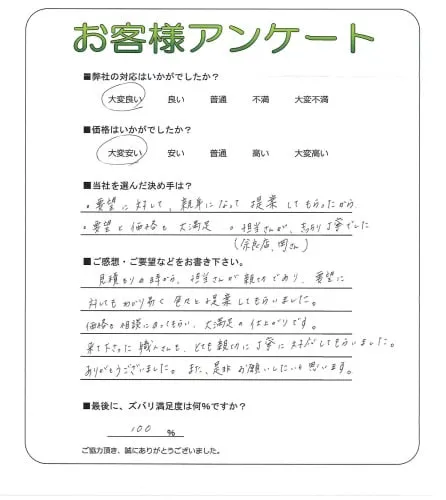 お客様アンケート
■弊社の対応はいかがでしたか?
大変良い 良い 普通 不満 大変不満
■価格はいかがでしたか?
大変安い 安い 普通 高い 大変高い
■当社を選んだ決め手は?
・要望に対して、親身になって提案してもらったから
・要望と価格も大満足 ・担当さんが、丁寧でした
(奈良店、岡さん)
■ご感想・ご要望などをお書き下さい。
見積もりの時から、担当さんが親切であり、要望に
対してもわかり易く色々と提案してもらいました。
価格も相談にのってもらい、大満足の仕上がりです。
来て下さった職人さんも、とても親切に丁寧に対応してもらいました。
ありがとうございました。また、是非お願いしたいと思います。
■最後に、ズバリ満足度は何%ですか?
100 %
ご協力頂き、誠にありがとうございました。